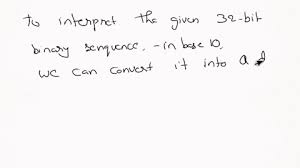 to interpret the given 32-bit
binary senquence, -in base 10,
we can convert it into a